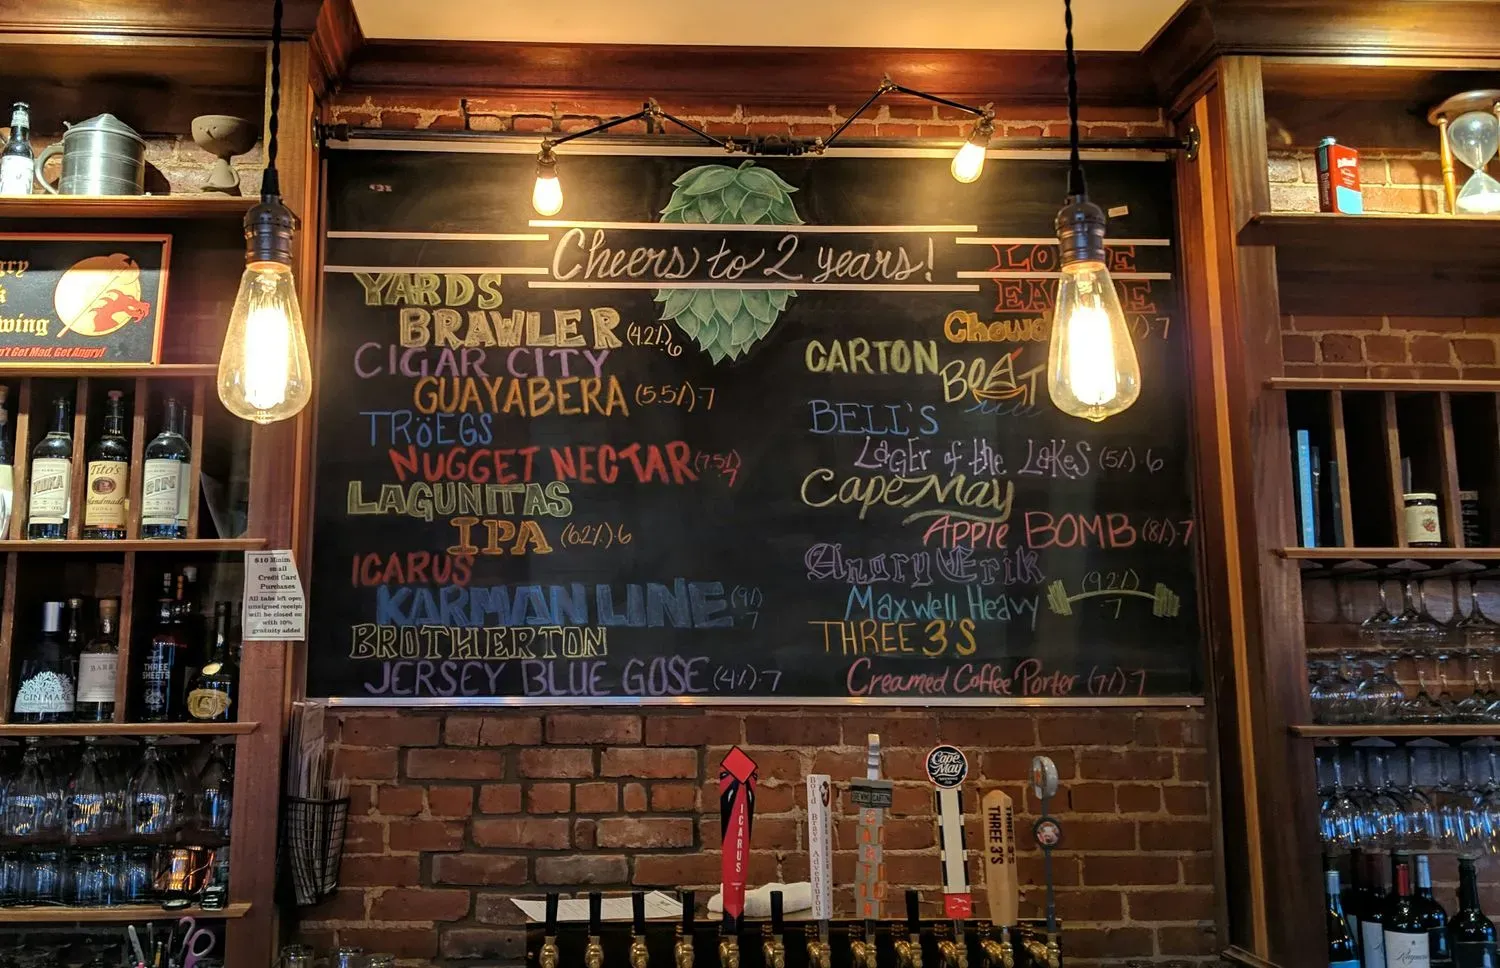 Cheers to 2 years!
YARDS
BRAWLER (4.2%) 6
CIGAR CITY
GUAYABERA (5.5%)-7
TRöEGS
NUGGET NECTAR (7.5%) 7
LAGUNITAS
IPA (6.2%)-6
ICARUS
KARMAN LINE (9%) 7
BROTHERTON
JERSEY BLUE GOSE (4%)-7
CARTON
BOAT
BELL'S
LAGER of the LAKES (5%)-6
Cape May
APPLE BOMB (8%)-7
Angry Erik
MAXWELL HEAVY (9.2%) 7
THREE 3'S
Creamed Coffee Porter (7%) 7
Don't Get Mad, Get Angry!
VODKA
Tito's
Handmade
GIN
$10 Minimum
Credit Card
Purchases
All tabs left open
unsigned receipts
will be closed out
with 10%
gratuity added
THREE
SHEETS
ICARUS
Bold Brave Adventurous
CARTON
Cape May
THREE 3'S
THREE 3'S